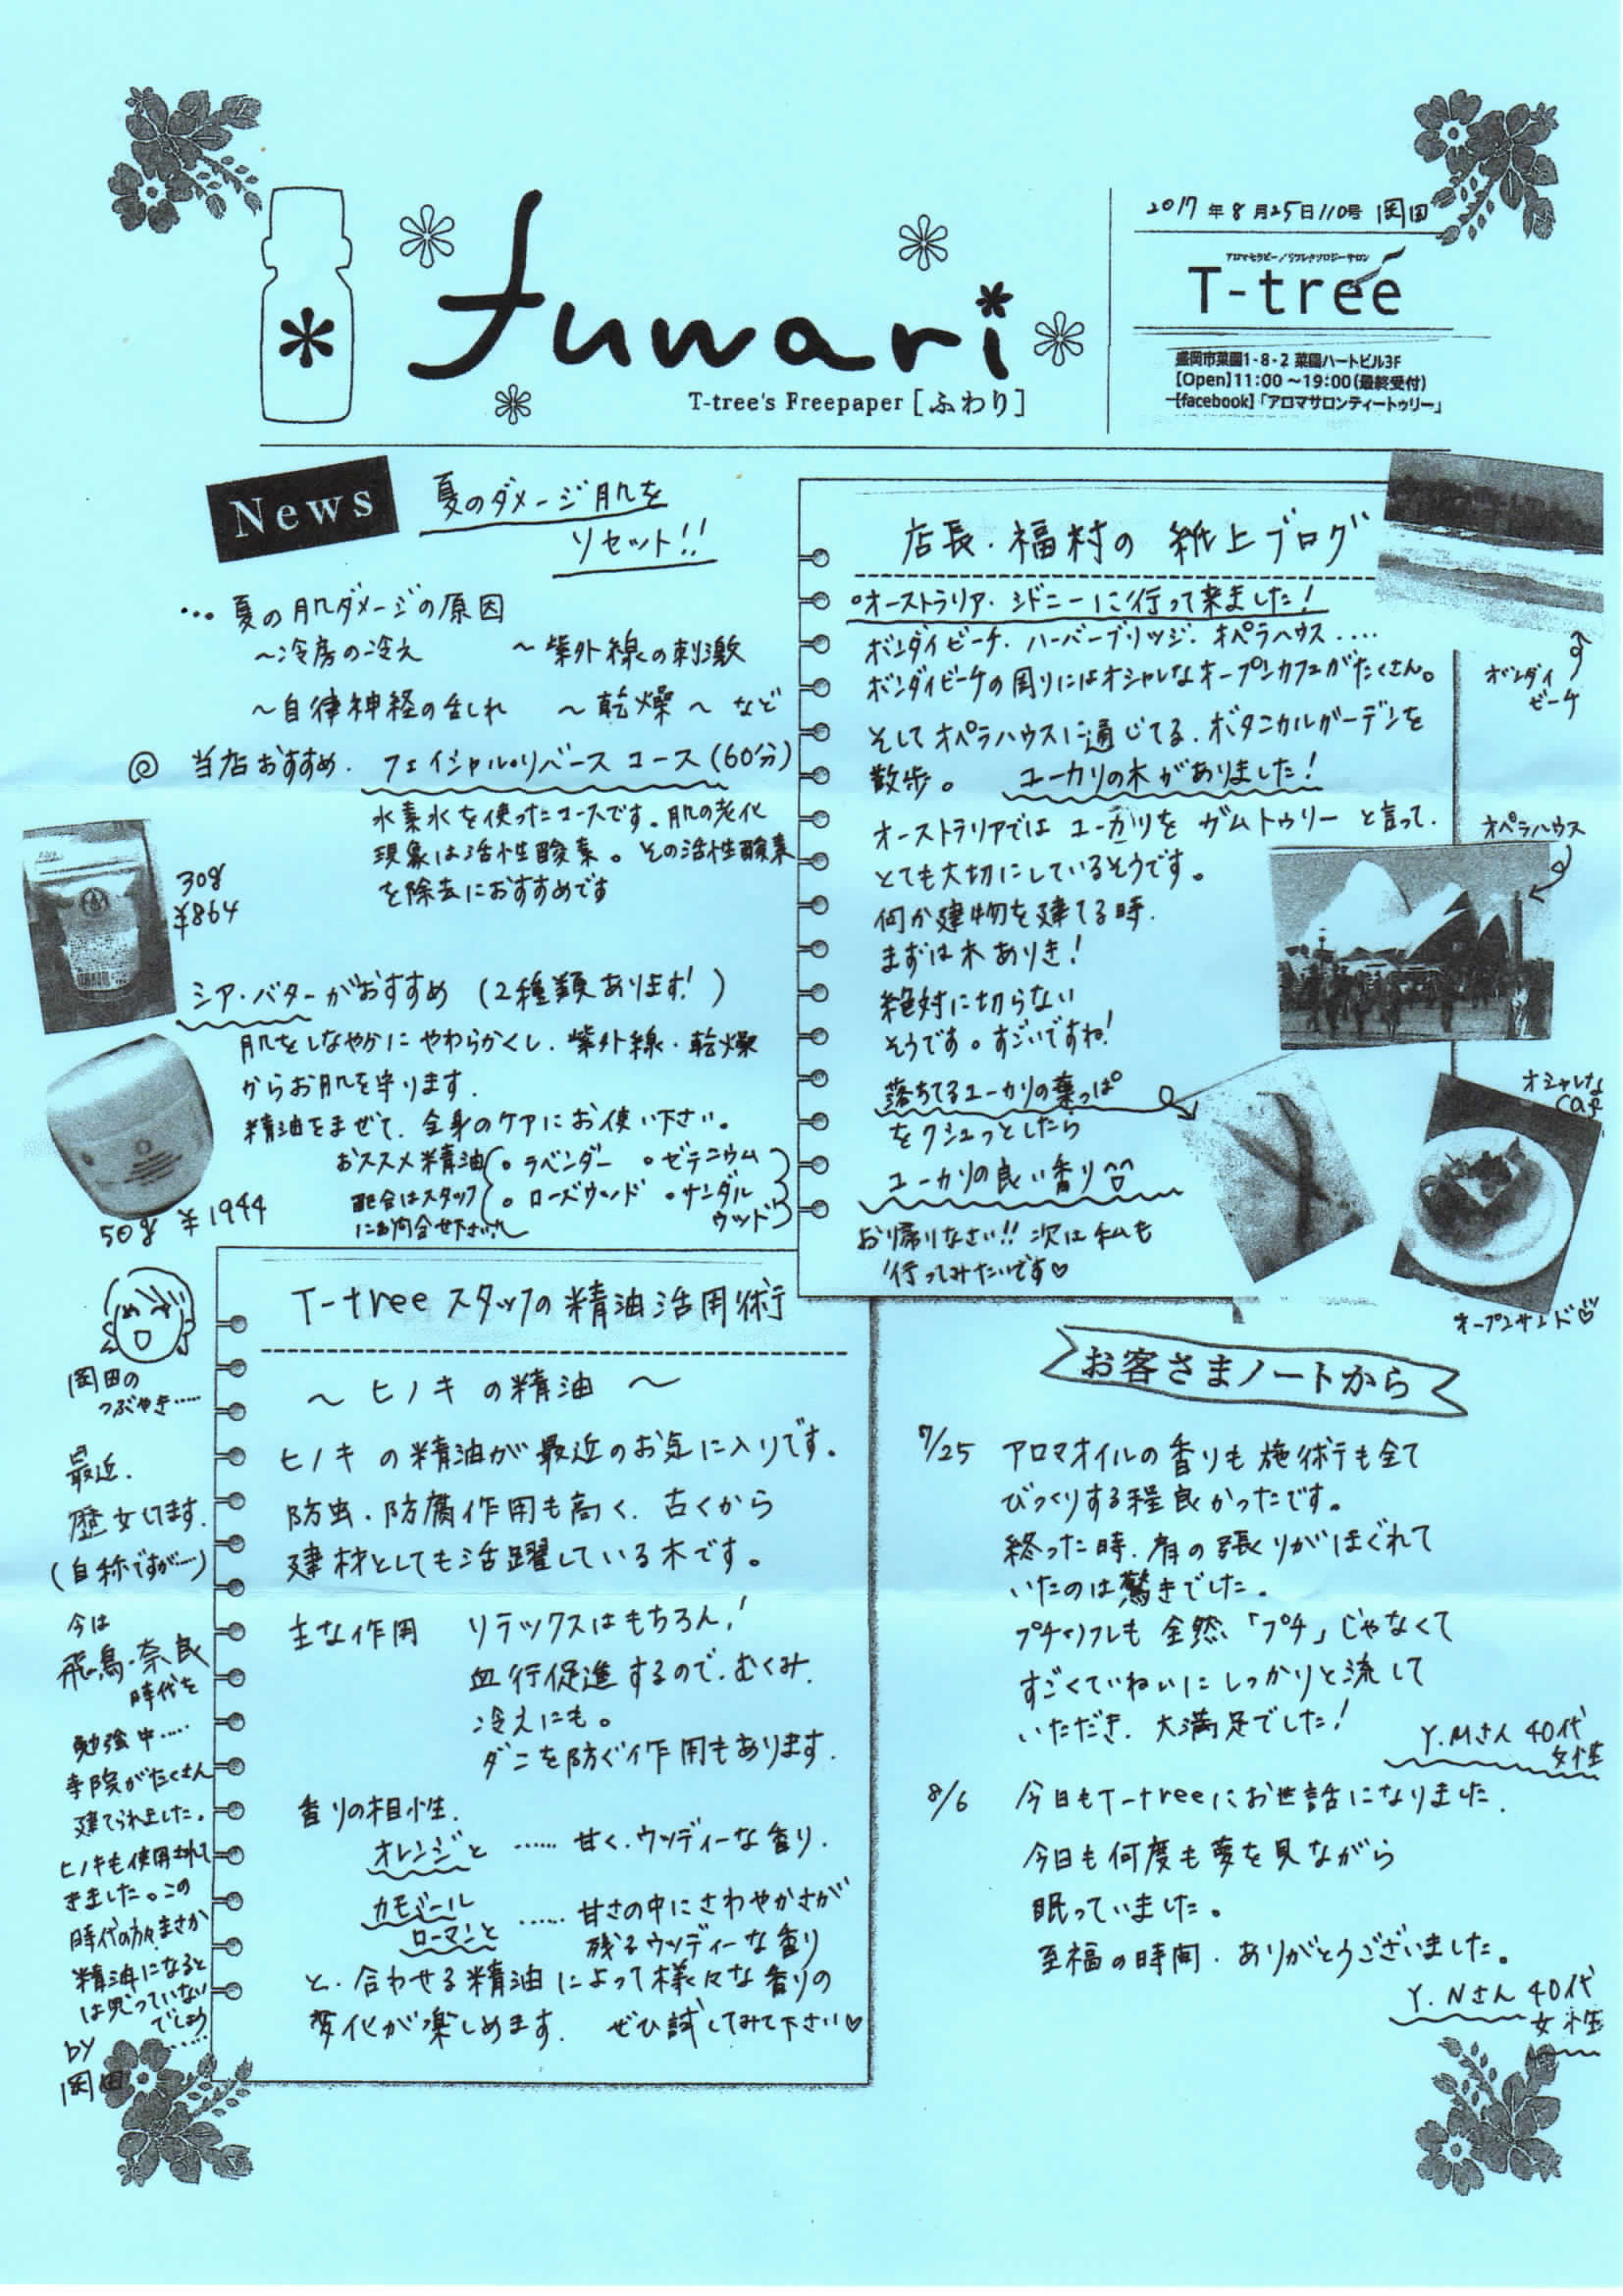 2017年8月25日110号 岡田
アロマセラピー/リフレクソロジーサロン
T-tree
盛岡市菜園1-8-2 菜園ハートビル3F
【Open】11:00～19:00(最終受付)
【facebook】「アロマサロンティートゥリー」
fuwari
T-tree's Freepaper [ふわり]
News
夏のダメージ肌を
リセット!!
… 夏の肌ダメージの原因
～冷房の冷え ～紫外線の刺激
～自律神経の乱れ ～乾燥～など
当店おすすめ. フェイシャル・リバース コース(60分)
水素水を使ったコースです。肌の老化
現象は活性酸素。その活性酸素
を除去におすすめです
30g
¥864
シア・バターがおすすめ (2種類あります!)
肌をしなやかに やわらかくし、紫外線・乾燥
からお肌を守ります.
精油をまぜて、全身のケアにお使い下さい。
おススメ精油 ・ラベンダー ・ゼラニウム
配合はスタッフ ・ローズウッド ・サンダル
にお問合せ下さい。 ウッド
50g ¥1944
店長・福村の 紙上ブログ
・オーストラリア・シドニーに行って来ました!
ボンダイビーチ・ハーバーブリッジ・オペラハウス....
ボンダイビーチの周りにはオシャレなオープンカフェがたくさん。
そしてオペラハウスに通じてる、ボタニカルガーデンを
散歩。 ユーカリの木がありました!
オーストラリアでは ユーカリを ガムトゥリー と言って、
とても大切にしているそうです。
何か建物を建てる時、
まずは木ありき!
絶対に切らない
そうです。すごいですね!
落ちてるユーカリの葉っぱ
をクシュっとしたら
ユーカリの良い香り
お帰りなさい!! 次は私も
行ってみたいです♡
ボンダイ
ビーチ
オペラハウス
オシャレな
Caf
オープンサンド♡
T-tree スタッフの精油活用術
～ ヒノキ の精油 ～
ヒノキ の精油が最近のお気に入りです。
防虫・防腐作用も高く、古くから
建材としても活躍している木です。
主な作用 リラックスはもちろん!
血行促進するので、むくみ、
冷えにも。
ダニを防ぐ作用もあります.
香りの相性.
オレンジと …… 甘く、ウッディーな香り.
カモミール
ローマンと …… 甘さの中にさわやかさが
残るウッディーな香り
と、合わせる精油によって様々な香りの
変化が楽しめます. ぜひ試してみて下さい♡
岡田の
つぶやき……
最近、
歴女してます.
(自称ですが…)
今は
飛鳥・奈良
時代を
勉強中……
寺院がたくさん
建てられました。
ヒノキも使用されて
きました。この
時代の方々まさか
精油になると
は思っていない
でしょう
……
by
岡田
お客さまノートから
7/25 アロマオイルの香りも施術も全て
びっくりする程良かったです。
終った時、肩の張りがほぐれて
いたのは驚きでした。
プチ・リフレも 全然「プチ」じゃなくて
すごくていねいに しっかりと流して
いただき、大満足でした!
Y.Mさん 40代
女性
8/6 今日もT-treeにお世話になりました.
今日も何度も夢を見ながら
眠っていました。
至福の時間、ありがとうございました。
Y.Nさん 40代
女性